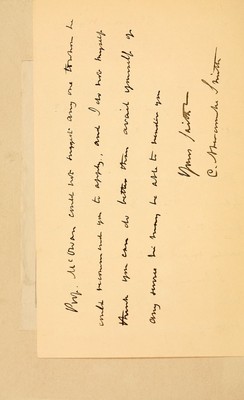 Prof. McOwan could not suggest any one to whom he
could recommend you to apply, and I do not myself
think you can do better than avail yourself of
any services he may be able to render you
Yours faithf
C. Smith